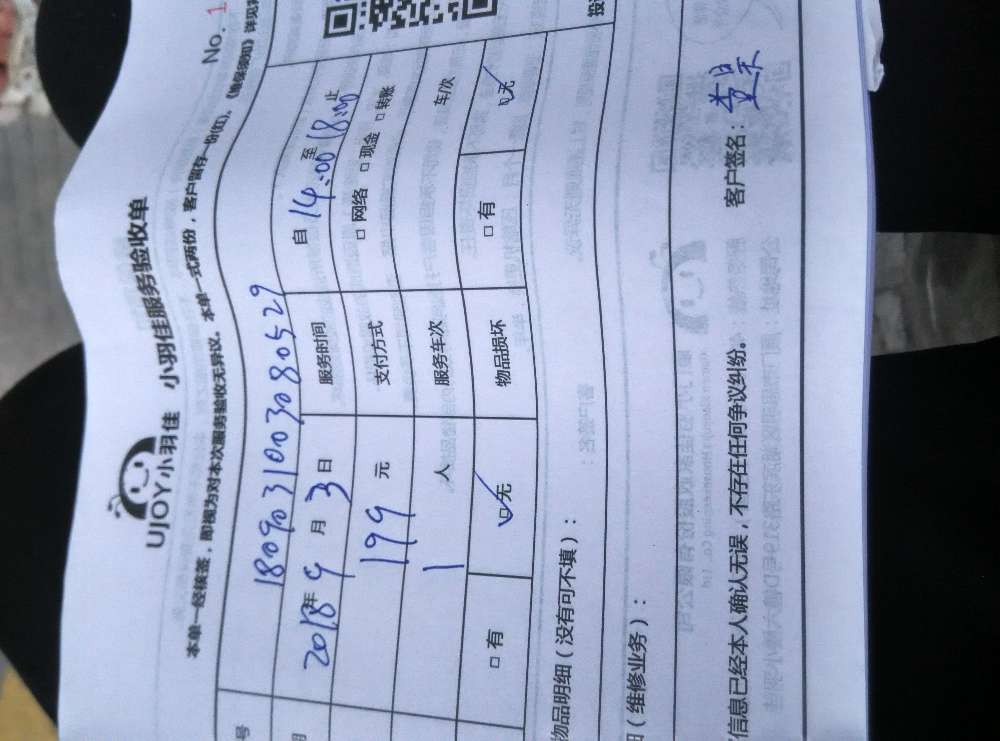 UJOY小羽佳 小羽佳服务验收单
No. 1
本单一经核签，即视为对本次服务验收无异议。本单一式两份，客户留存一份(红)。
号 1809031003080529
2018年9月3日 服务时间 自14:00至18:00止
199元 支付方式 □网络 □现金 □转账
1人 服务车次 车/次
□有 ☑无 物品损坏 □有 ☑无
物品明细（没有可不填）：
（维修业务）：
信息已经本人确认无误，不存在任何争议纠纷。 客户签名：